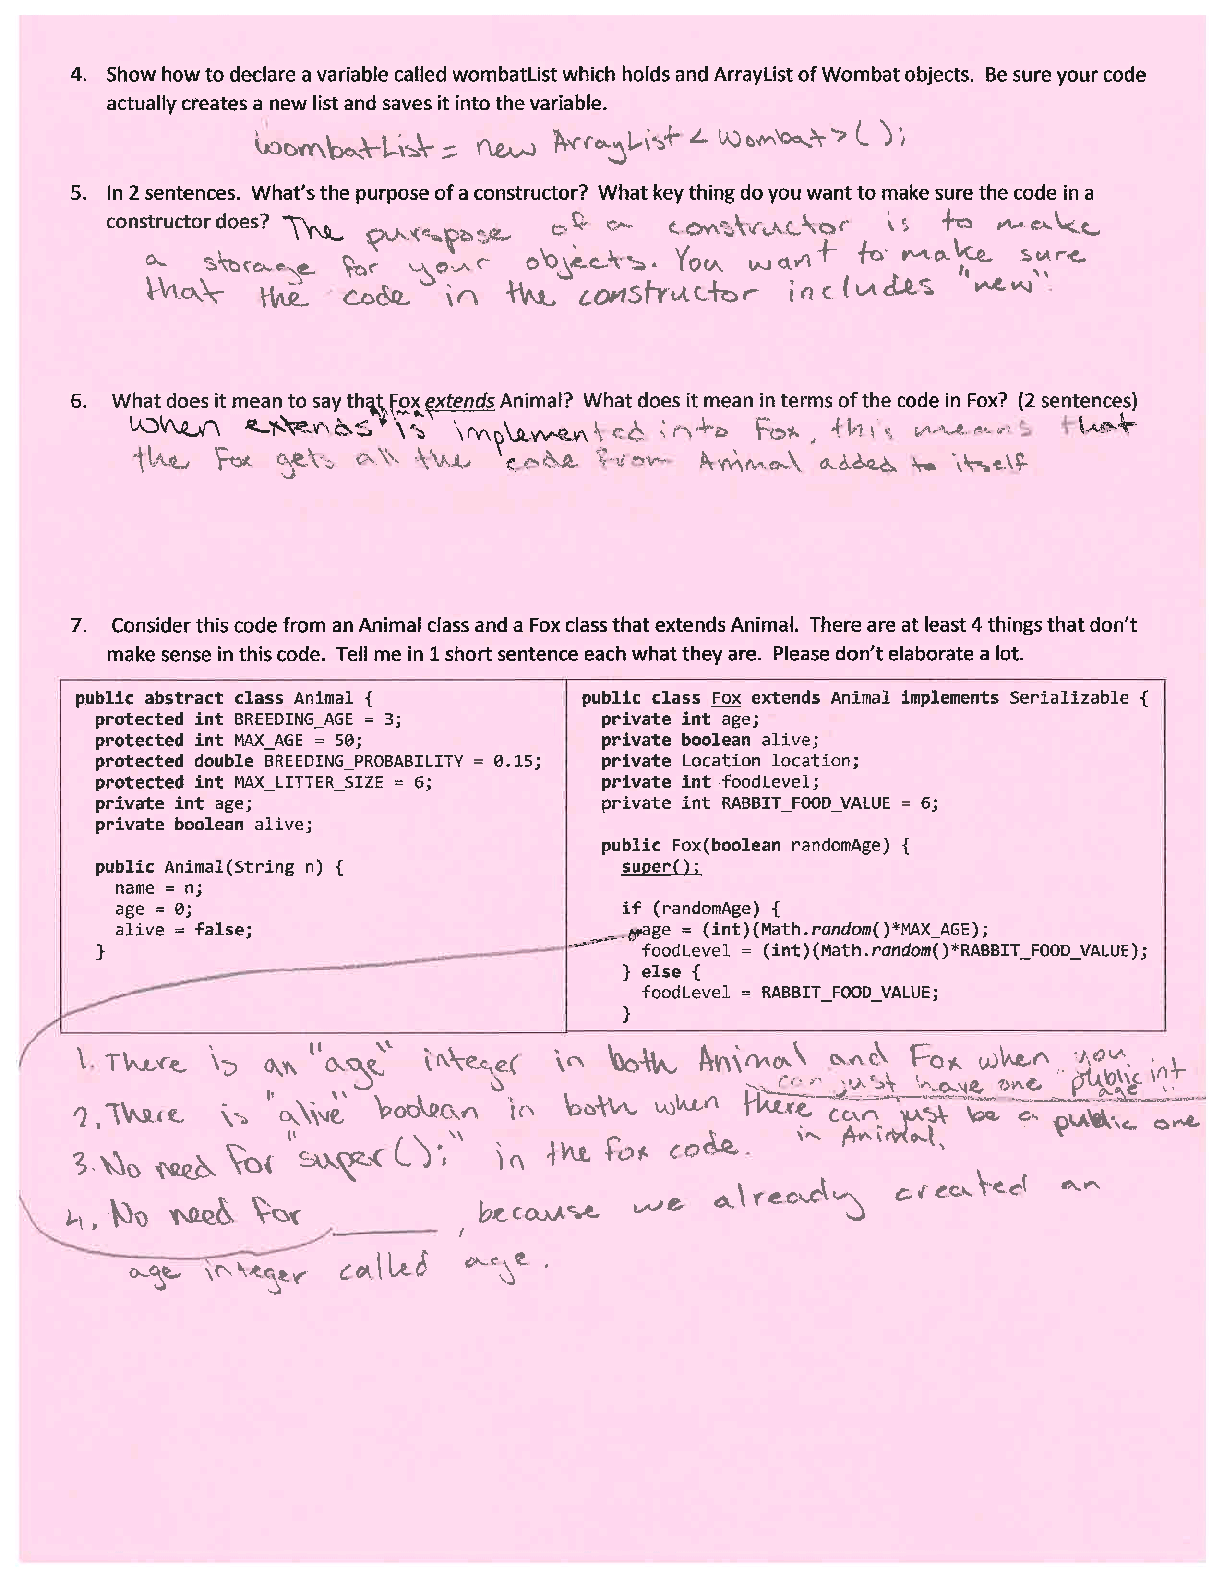 4. Show how to declare a variable called wombatList which holds and ArrayList of Wombat objects. Be sure your code
actually creates a new list and saves it into the variable.
wombatList = new ArrayList<Wombat>();
5. In 2 sentences. What's the purpose of a constructor? What key thing do you want to make sure the code in a
constructor does? The purpose of a constructor is to make
a storage for your objects. You want to make sure
that the code in the constructor includes "new".
6. What does it mean to say that Fox extends Animal? What does it mean in terms of the code in Fox? (2 sentences)
When "extends" is implemented into Fox, this means that
the Fox gets all the code from Animal added to itself
7. Consider this code from an Animal class and a Fox class that extends Animal. There are at least 4 things that don't
make sense in this code. Tell me in 1 short sentence each what they are. Please don't elaborate a lot.
public abstract class Animal {
protected int BREEDING_AGE = 3;
protected int MAX_AGE = 50;
protected double BREEDING_PROBABILITY = 0.15;
protected int MAX_LITTER_SIZE = 6;
private int age;
private boolean alive;
public Animal(String n) {
name = n;
age = 0;
alive = false;
}
public class Fox extends Animal implements Serializable {
private int age;
private boolean alive;
private Location location;
private int foodLevel;
private int RABBIT_FOOD_VALUE = 6;
public Fox(boolean randomAge) {
super();
if (randomAge) {
age = (int)(Math.random()*MAX_AGE);
foodLevel = (int)(Math.random()*RABBIT_FOOD_VALUE);
} else {
foodLevel = RABBIT_FOOD_VALUE;
}
1. There is an "age" integer in both Animal and Fox when you
can just have one "public int
age"
2. There is "alive" boolean in both when there can just be a public one
in Animal.
3. No need for "super();" in the fox code.
4. No need for ______, because we already created an
age integer called age.